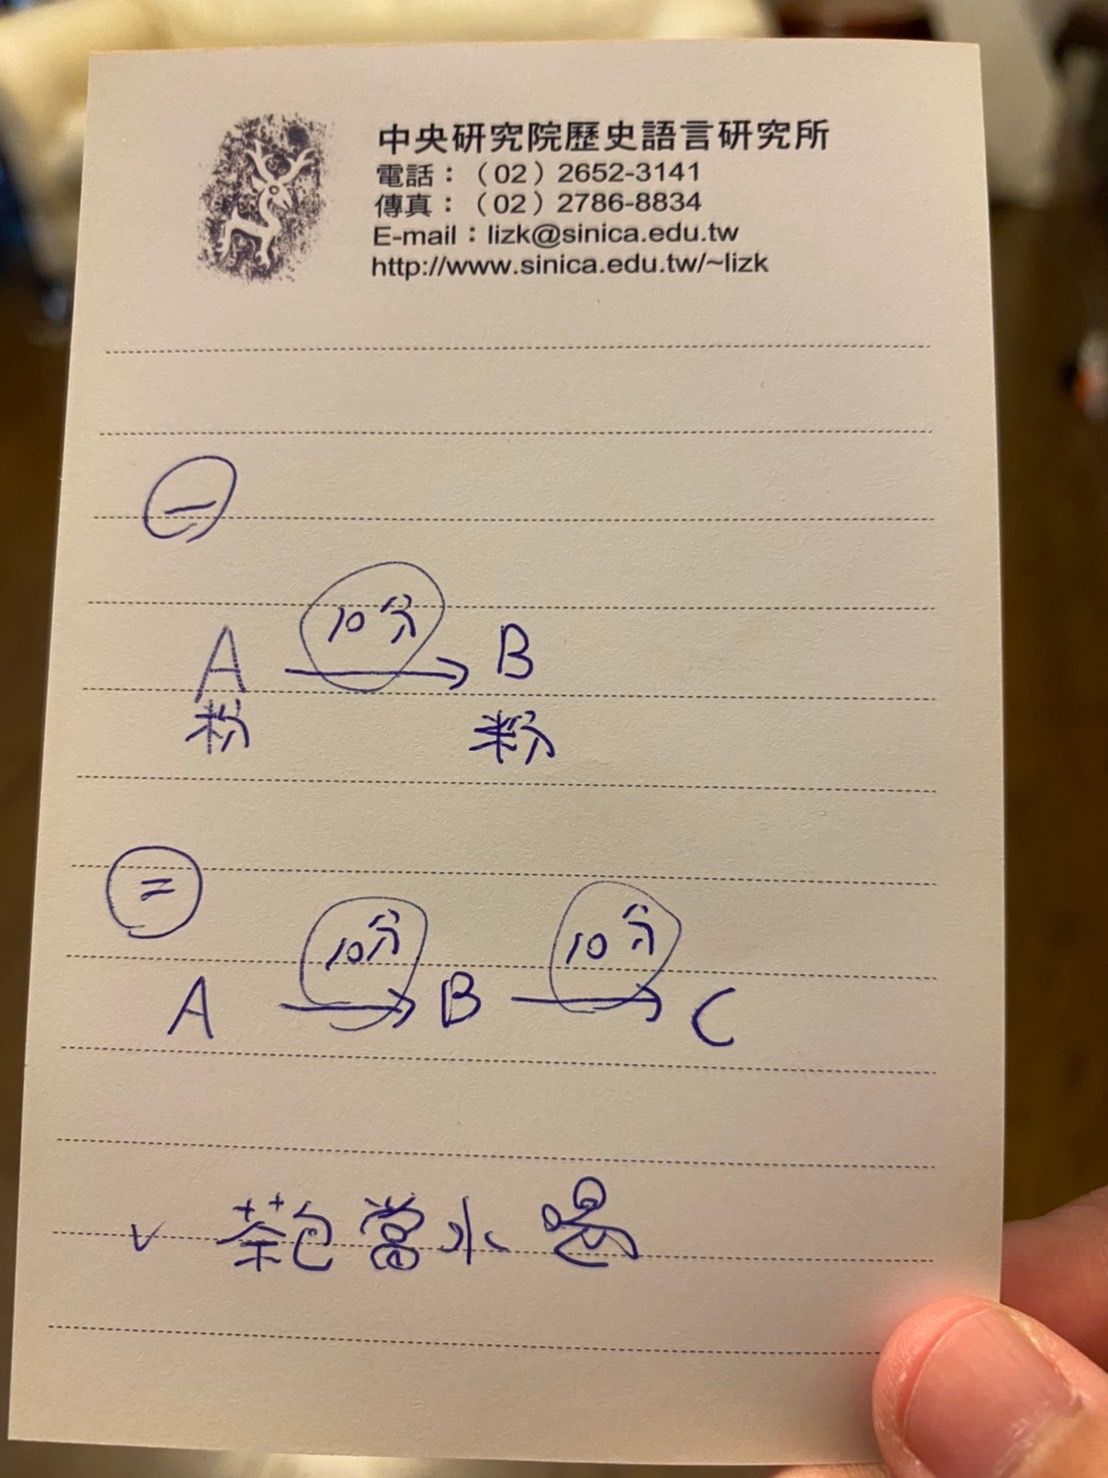 中央研究院歷史語言研究所
電話：（02）2652-3141
傳真：（02）2786-8834
E-mail：lizk@sinica.edu.tw
http://www.sinica.edu.tw/~lizk
㊀
A 10分→ B
粉 粉
㊁
A 10分→ B 10分→ C
✓ 茶包當水喝